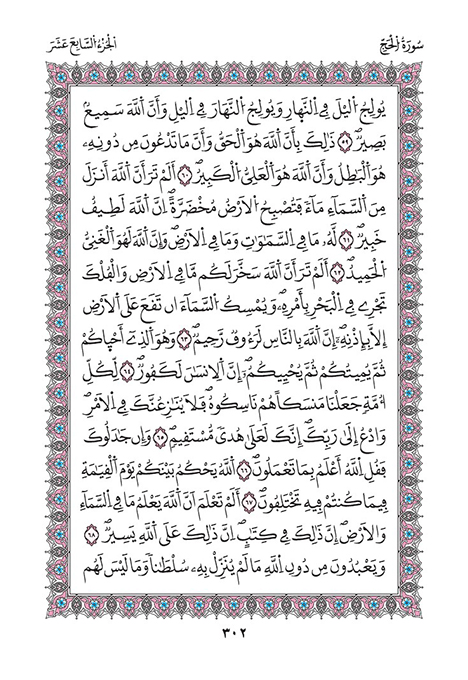 سُورَةُ الْحَجِّ
الْجُزْءُ السَّابِعَ عَشَرَ
يُولِجُ اُليْلَ فِي اِلنَّهارِ وَيُولِجُ اُلنَّهَارَ فِي اِليْلِ وَأَنَّ اَللَّهَ سَمِيعُۢ
بَصِيرٞۖ ٥٩ ذَٰلِكَ بِأَنَّ اَللَّهَ هُوَ اَلْحَقُّ وَأَنَّ مَا تَدْعُونَ مِن دُونِهِۦ
هُوَ اَلْبَٰطِلُ وَأَنَّ اَللَّهَ هُوَ اَلْعَلِيُّ اُلْكَبِيرُۖ ٦٠ أَلَمْ تَرَ أَنَّ اَللَّهَ أَنزَلَ
مِنَ اَلسَّمَآءِ مَآءٗ فَتُصْبِحُ اُلَارْضُ مُخْضَرَّةًۖ اِنَّ اَللَّهَ لَطِيفٌ
خَبِيرٞۖ ٦١ لَّهُۥ مَا فِي اِلسَّمَٰوَٰتِ وَمَا فِي اِلَارْضِۖ وَإِنَّ اَللَّهَ لَهُوَ اَلْغَنِيُّ
اُلْحَمِيدُۖ ٦٢ أَلَمْ تَرَ أَنَّ اَللَّهَ سَخَّرَ لَكُم مَّا فِي اِلَارْضِ وَالْفُلْكَ
تَجْرِے فِي اِلْبَحْرِ بِأَمْرِهِۦۖ وَيُمْسِكُ اُلسَّمَآءَ اَن تَقَعَ عَلَى اَلَارْضِ
إِلَّا بِإِذْنِهِۦٓۖ إِنَّ اَللَّهَ بِالنَّاسِ لَرَءُوفٞ رَّحِيمٞۖ ٦٣ وَهُوَ اَلذِےٓ أَحْيَاكُمْ
ثُمَّ يُمِيتُكُمْ ثُمَّ يُحْيِيكُمُۥٓۖ إِنَّ اَلِانسَٰنَ لَكَفُورٞۖ ٦٤ لِّكُلِّ
أُمَّةٖ جَعَلْنَا مَنسَكاً هُمْ نَاسِكُوهُۖ فَلَا يُنَٰزِعُنَّكَ فِي اِلَامْرِۖ
وَادْعُ إِلَىٰ رَبِّكَۖ إِنَّكَ لَعَلَىٰ هُدىٗ مُّسْتَقِيمٖۖ ٦٥ وَإِن جَٰدَلُوكَ
فَقُلِ اِللَّهُ أَعْلَمُ بِمَا تَعْمَلُونَۖ ٦٦ اَللَّهُ يَحْكُمُ بَيْنَكُمْ يَوْمَ اَلْقِيَٰمَةِ
فِيمَا كُنتُمْ فِيهِ تَخْتَلِفُونَۖ ٦٧ أَلَمْ تَعْلَمَ اَنَّ اَللَّهَ يَعْلَمُ مَا فِي اِلسَّمَآءِ
وَالَارْضِۖ إِنَّ ذَٰلِكَ فِي كِتَٰبٍۖ اِنَّ ذَٰلِكَ عَلَى اَللَّهِ يَسِيرٞۖ ٦٨
وَيَعْبُدُونَ مِن دُونِ اِللَّهِ مَا لَمْ يُنَزِّلْ بِهِۦ سُلْطَٰناً وَمَا لَيْسَ لَهُم
٣٠٢